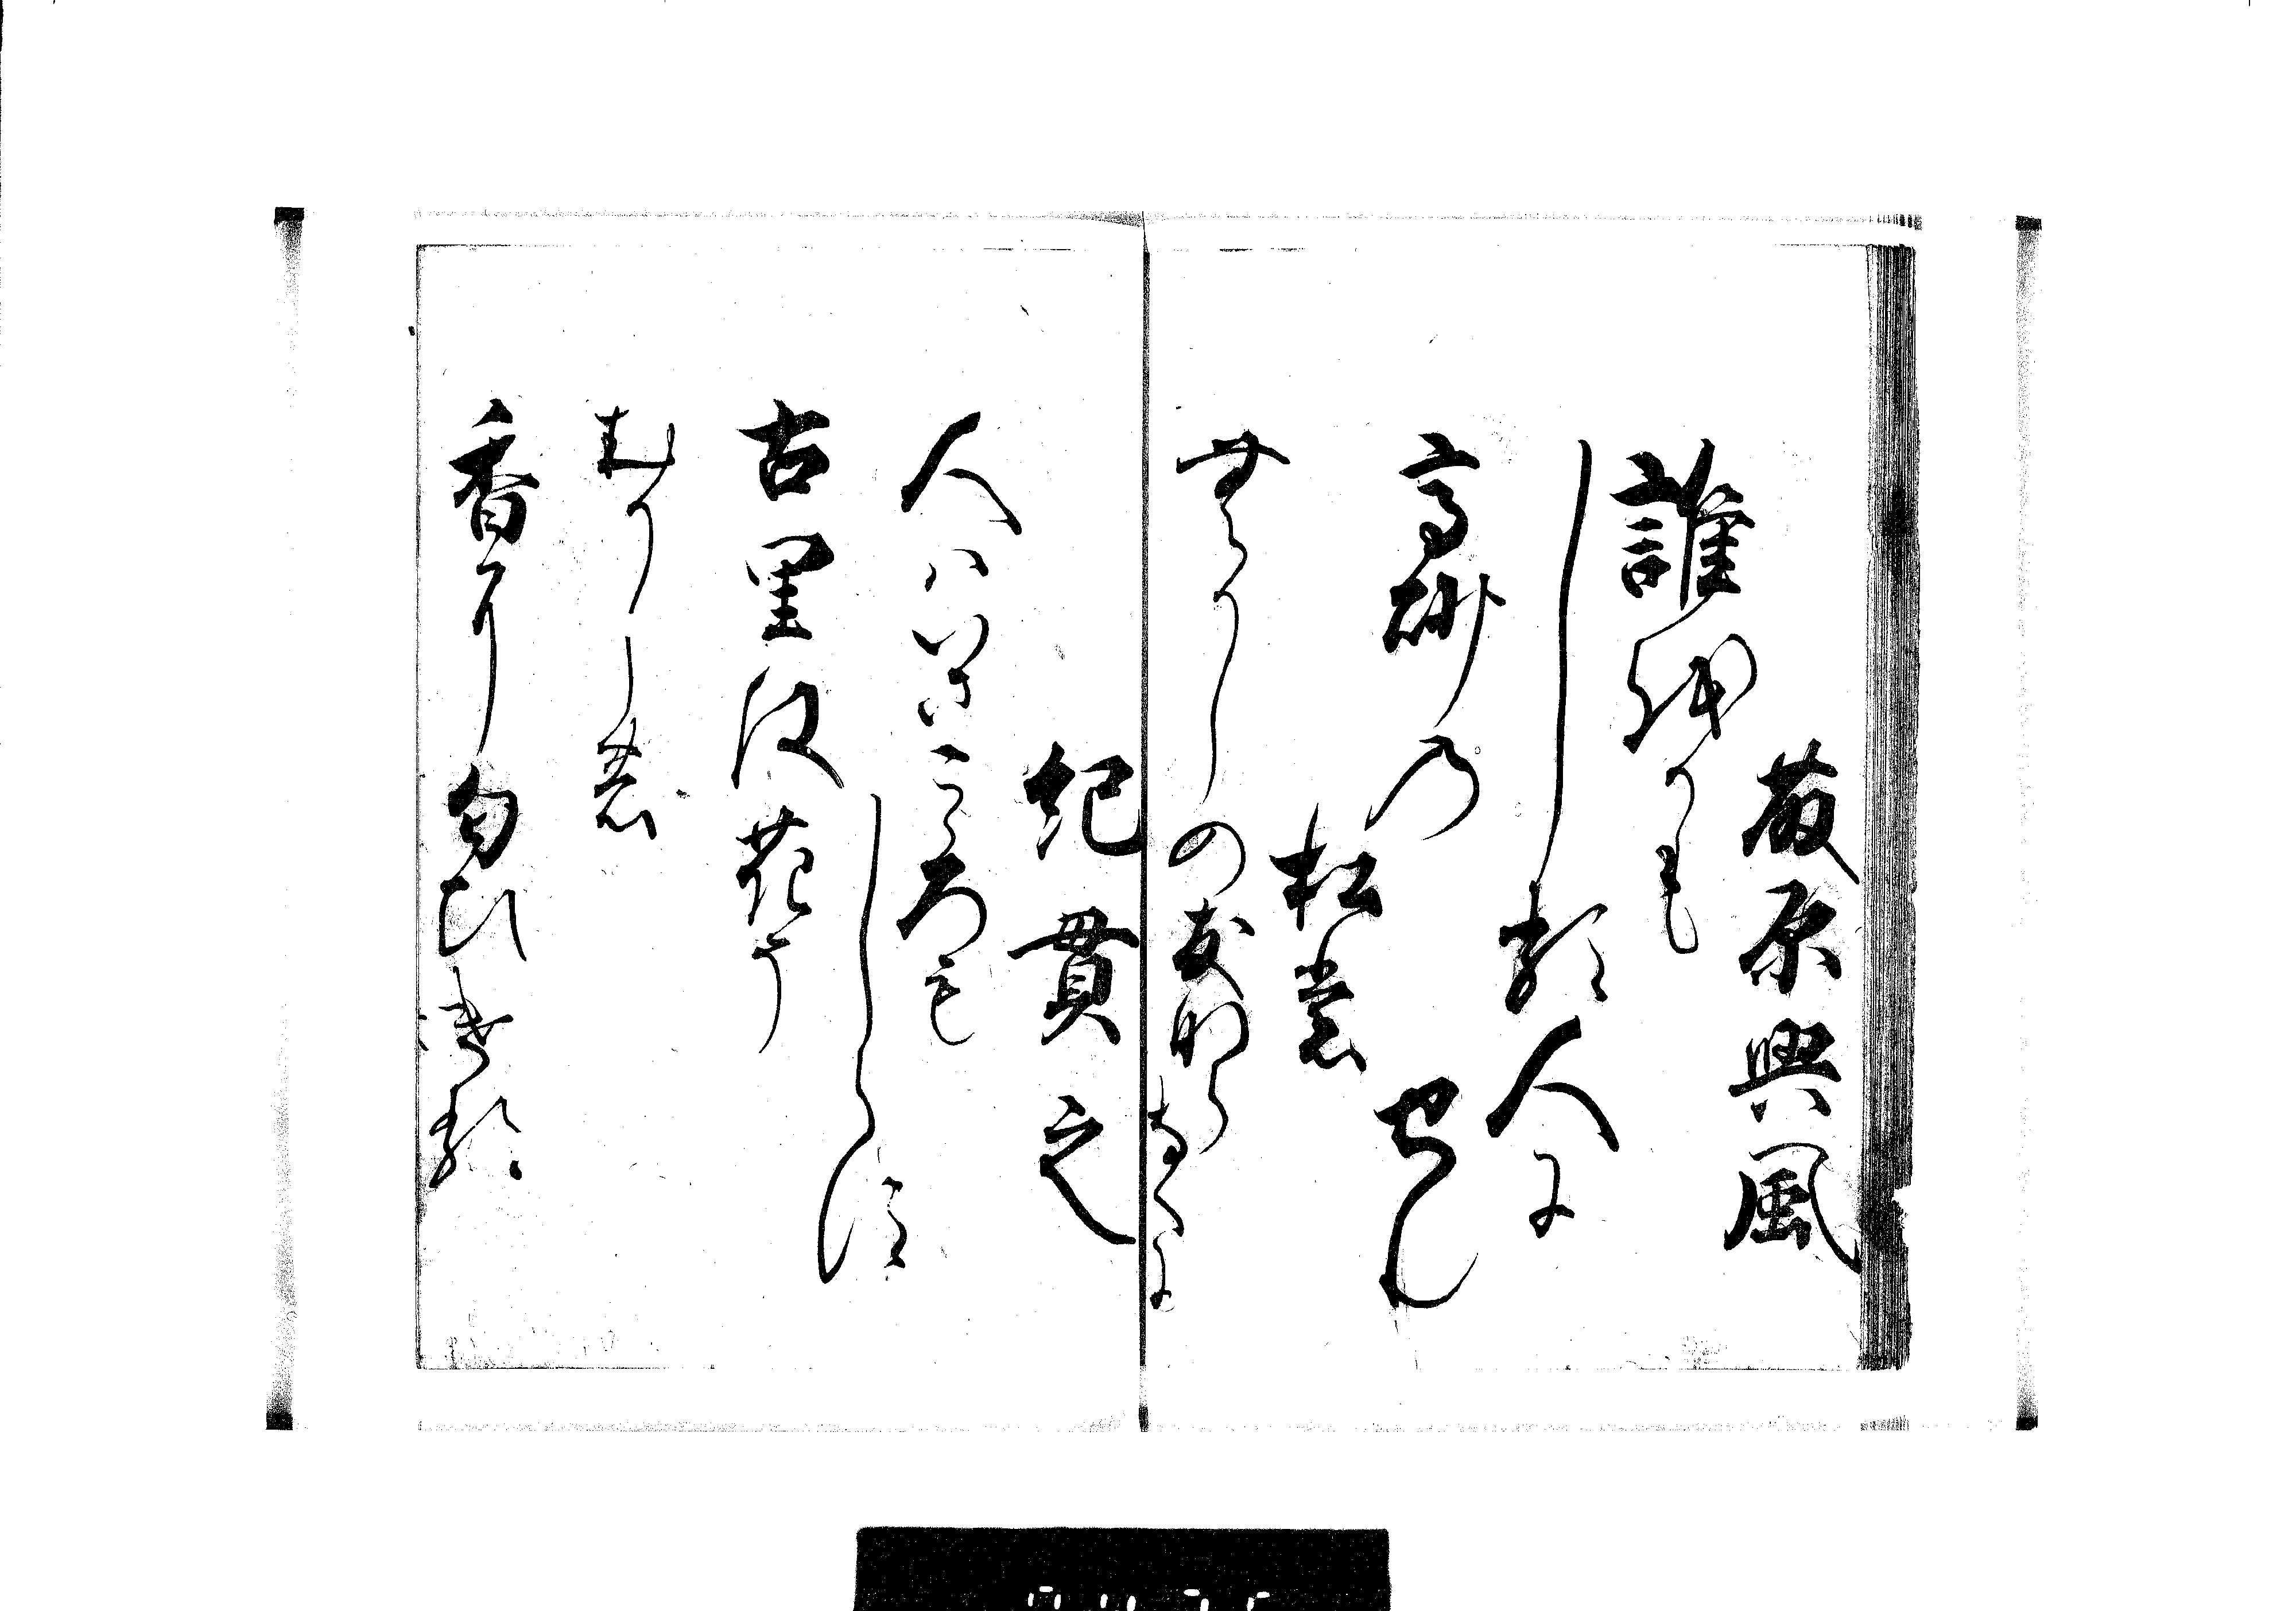 藤原興風
誰越かも
しる人に
高砂の
せむ
松裳
むかしの友ならなくに
紀貫之
人はいさこゝろも
しらす
古里は花そ
むかしの
香に匂ひける